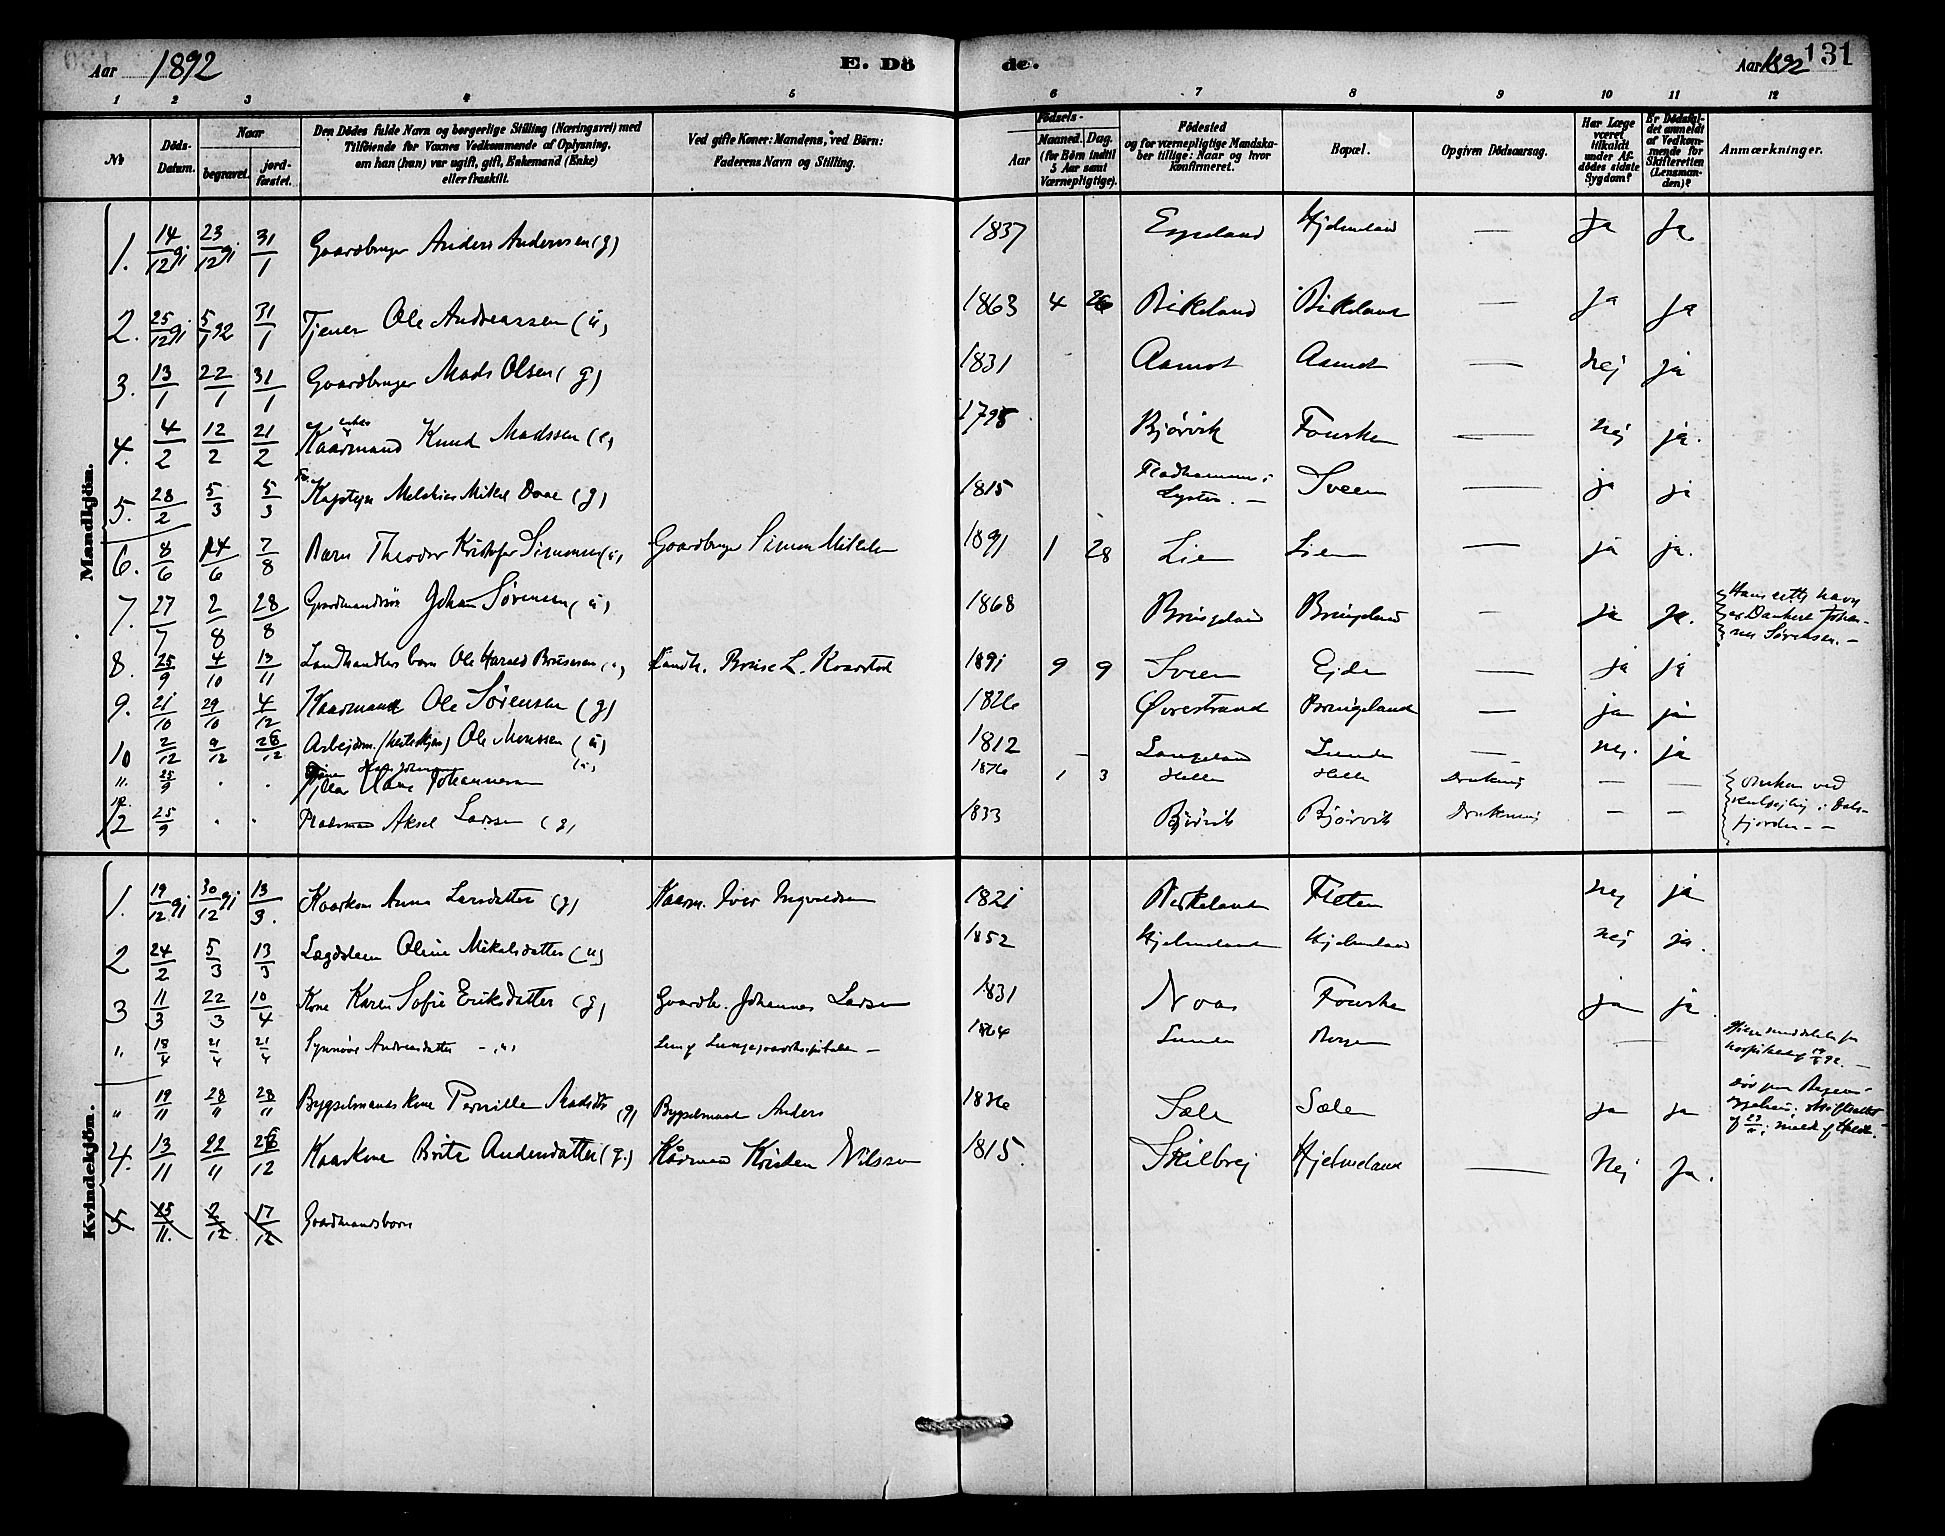 Aar 1892 E. Dö
de. Aar 1892 131
1 2 3 4 5
6 7 8 9 10 11 12
No
Döds-
Datum.
Naar
begravet.
jord-
fæstet.
Den Dödes fulde Navn og borgerlige Stilling (Næringsvei) med
Tilföiende for Voxnes Vedkommende af Oplysning,
om han (hun) var ugift, gift, Enkemand (Enke)
eller fraskilt.
Ved gifte Koner: Mandens, ved Börn:
Faderens Navn og Stilling.
Födsels-
Aar
Maaned. Dag.
(for Börn indtil
5 Aar samt
Værnepligtige).
Födested
og for værnepligtige Mandska-
ber tillige: Naar og hvor
konfirmeret.
Bopæl.
Opgiven Dödsaarsag.
Har Læge
været
tilkaldt
under Af-
dödes sidste
Sygdom?
Er Dödsfal-
det anmeldt
af Vedkom-
mende for
Skifteretten
(Lensman-
den)?
Anmærkninger.
Mandkjön.
1. 14/12 91 23/12 91 31/1 Gaardbruger Anders Andersen (g) 1837 Espeland Hjelmeland — Ja Ja
2. 25/12 91 5/1 92 31/1 Tjener Ole Andreassen (u) 1863 4 26 Birkeland Birkeland — Ja Ja
3. 13/1 22/1 31/1 Gaardbruger Mads Olsen (g) 1831 Aamot Aamot — nej ja
4. 4/2 12/2 21/2 Kaarmand Knud Madssen (e) 1795 Bjørvik Fourke — nej ja.
5. 28/2 5/3 5/3 Kaptejn Melchior Mikal Daae (g) 1815 Lyster. — Sveen — ja ja
6. 8/6 14/6 7/8 Barn Theodor Kristofer Simonsen (u) Gaardbruger Simon Mikalsen 1891 1 28 Lie Lien — ja ja.
7. 27/7 2/8 28/8 Gaardmandssøn Johan Sørensen (u) 1868 Bringeland Bringeland — ja ja. Hans rette navn
er Dankert Johan-
nes Sørensen. —
8. 25/9 4/10 13/11 Landhandlers barn Ole Harald Brusesen (u) Landh. Bruse L. Kvarstad 1891 9 9 Sveen Ejde ja ja
9. 21/10 29/10 4/12 Kaarmand Ole Sørensen (g) 1826 Øvrestrand Bringeland — ja ja
10 2/12 9/12 26/12 Arbejdsm. Ole Monssen (u) 1812 — Langeland Lunde — nej. ja
" 25/9 . . Hans Johannessen (u) 1876 1 3 Helle Helle Drukning — —
12 25/9 . . Pladsmand Aksel Larssen (g) 1833 Bjørvik Bjørvik Drukning — — druknede ved
kulsejling i Dals-
fjorden — —
Kvindekjön.
1. 19/12 91 30/12 91 13/3. Kaarkone Anna Larsdatter (g) Kaarm. Iver Ingvaldsen 1821 Birkeland Fleten nej ja
2 24/2 5/3 13/3 Lægdslem Oline Mikalsdatter (u) 1852 Hjelmeland Hjelmeland nej ja.
3 11/3 22/3 10/4 Kone Karen Sofie Eriksdatter (g) Gaardb. Johannes Larsen 1831 Noas Fourke ja ja
" 18/4 21/4 21/4 Synnøve Andreasdatter — (u) Lungegaardshospitalen — 1864 Lunde Bergen —
" 19/11 28/11 28/11 Bygselmandskone Pernille Madsdtr (g) Bygselmand Anders 1826 Sæle Sælen ja ja
4. 13/11 22/11 26/12 Kaarkone Brita Andersdatter (g.) Kårmand Kristen Nilssen 1815 Skilbrej Hjelmeland — Nej Ja.
5 25/11. 2/12 17/12 Gaardmandsbarn